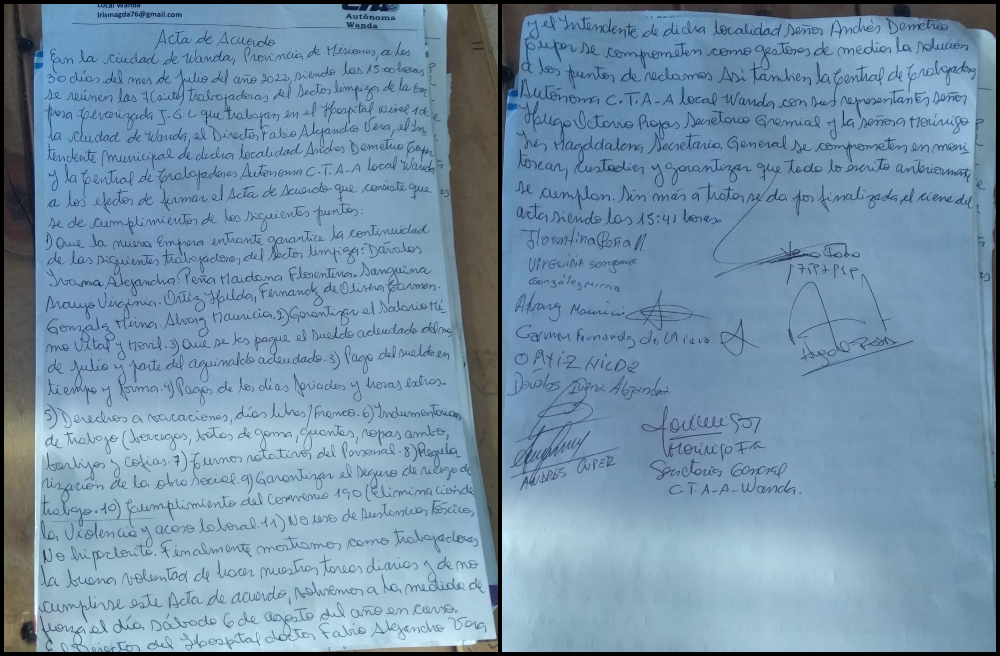 Local Wanda
irismagda76@gmail.com
CTA
Autónoma
Wanda
Acta de Acuerdo
En la ciudad de Wanda, Provincia de Misiones, a los
30 días del mes de Julio del año 2022, siendo las 15:00 horas
se reúnen las 7 (siete) trabajadoras del Sector limpieza de la Em
presa Tercerizada J.G.C que trabajan en el Hospital nivel 1 de
la ciudad de Wanda, el Director, Fabio Alejandro Vera, el In
tendente Municipal de dicha localidad Andres Demetrio Cuper
y la Central de Trabajadores Autonoma C.T.A-A local Wanda
a los efectos de firmar el Acta de Acuerdo que consiste que
se de cumplimientos de los siguientes puntos:
1) Que la nueva Empresa entrante garantice la continuidad
de las siguientes trabajadoras del Sector limpieza: Dávalos
Ivonna Alejandra. Peña Maidana Florentina. Sanguina
Araujo Virginia. Ortiz Hilda, Fernandz de Olivera Carmen.
Gonzalz Mirna. Alvarz Mauricia. 2) Garantizar el Salario Mí
nimo Vital y Movil. 3) Que se les pague el sueldo adeudado del mes
de Julio y parte del aguinaldo adeudado. 3) Pago del sueldo en
tiempo y forma. 4) Pagos de los dias feriados y horas extras.
5) Derechos a vacaciones, días libres/Franco. 6) Indumentarias
de trabajo (borcegos, botas de goma, guantes, ropas ambo,
barbijos y cofias. 7) Turnos rotativos del Personal. 8) Regula
rización de la obra social. 9) Garantizar el seguro de riesgo de
trabajo. 10) Cumplimiento del convenio 190 (Eliminación de
la Violencia y acoso laboral. 11) No uso de Sustancias tóxicas,
No hipoclorito. Finalmente mostramos como trabajadoras
la buena voluntad de hacer nuestras tareas diarias y de no
cumplirse este Acta de acuerdo, volvemos a la medida de
fuerza el día sábado 6 de agosto del año en curso.
El Director del Hospital doctor Fabio Alejandro Vera
y el Intendente de dicha localidad señor Andrés Demétrio
Cuper se comprometen como gestores de mediar la solución
a los puntos de reclamos. Asi tambien la Central de Trabajadores
Autónoma C.T.A-A local Wanda con sus representantes señor
Hugo Victorio Rojas Secretario Gremial y la señora Horinigo
Iris Magddalena, Secretaria General se comprometen en moni
torear, custodiar y garantizar que todo lo escrito anteriormente
se cumplan. Sin más a tratar se da por finalizada el cierre del
acta siendo las 15:41 horas.
Florentina Peña M
VIRGINIA Sangina
González Mirna
Alvarz Mauricia
Carmen Fernandz de Olivera
ORTIZ HILDA
Davalos Alejandra
ANDRES CUPER
Horinigo Iris
Secretaria General
C.T.A-A-Wanda.